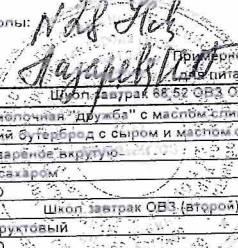 олы: N28
Примерно
для пита
Школ завтрак 68 52 ОВЗ О
молочная "дружба" с маслом сли
ий бутерброд с сыром и маслом с
вареное вкрутую
сахаром
О
Школ завтрак ОВЗ (второй)
руктовый